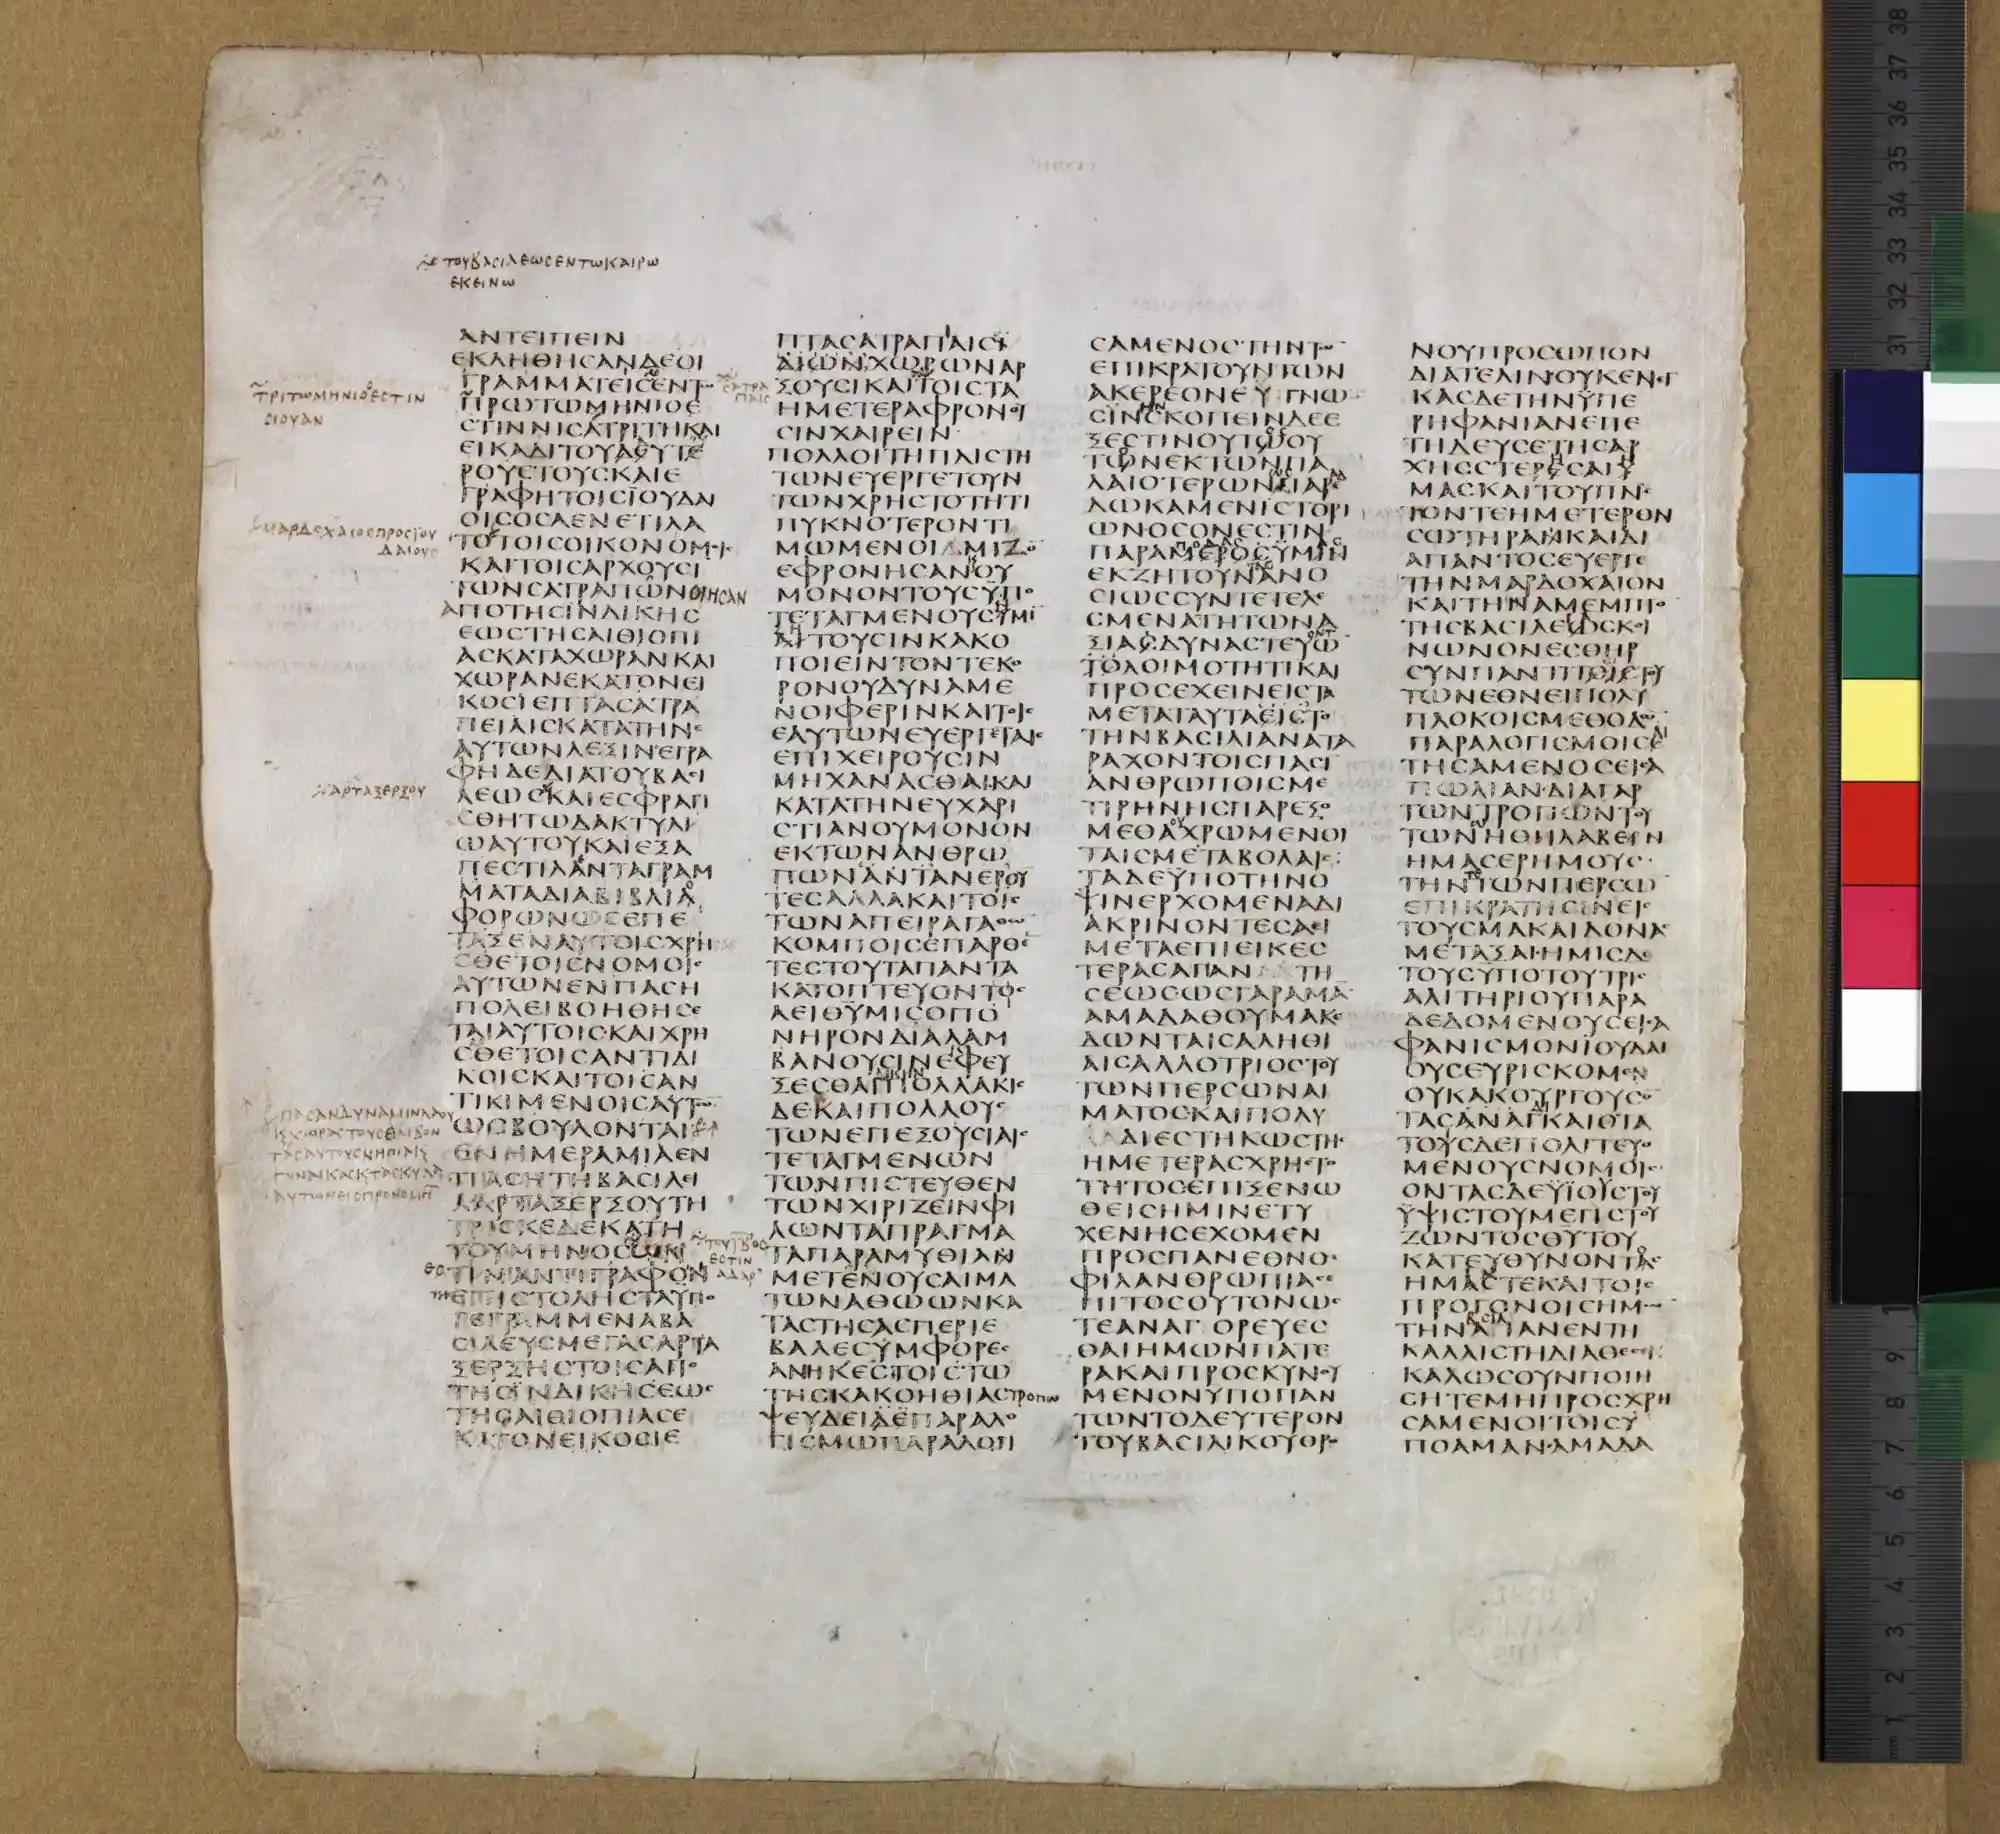 ΤΟΥΒΑCΙΛΕωCΕΝΤωΚΑΙΡω
ΕΚΕΙΝω
ΑΝΤΕΙΠΕΙΝ
ΕΚΛΗΘΗCΑΝΔΕΟΙ
ΓΡΑΜΜΑΤΕΙCΕΝΤω
ΠΡωΤωΜΗΝΙΟΕ
CΤΙΝΝΙCΑΤΡΙΤΗΚΑΙ
ΕΙΚΑΔΙΤΟΥΔΕΥΤΕ
ΡΟΥΕΤΟΥCΚΑΙΕ
ΓΡΑΦΗΤΟΙCΙΟΥΔΑΙ
ΟΙCΟCΑΕΝΕΤΙΛΑ
ΤΟΤΟΙCΟΙΚΟΝΟΜΟΙ
ΚΑΙΤΟΙCΑΡΧΟΥCΙ
ΤωΝCΑΤΡΑΠωΝ
ΑΠΟΤΗCΙΝΔΙΚΗC
ΕωCΤΗCΑΙΘΙΟΠΙ
ΑCΚΑΤΑΧωΡΑΝΚΑΙ
ΧωΡΑΝΕΚΑΤΟΝΕΙ
ΚΟCΙΕΠΤΑCΑΤΡΑ
ΠΕΙΑΙCΚΑΤΑΤΗΝΕ
ΑΥΤωΝΛΕΞΙΝΕΓΡΑ
ΦΗΔΕΔΙΑΤΟΥΒΑCΙ
ΛΕωCΚΑΙΕCΦΡΑΓΙ
CΘΗΤωΔΑΚΤΥΛΙ
ωΑΥΤΟΥΚΑΙΕΞΑ
ΠΕCΤΙΛΑΝΤΑΓΡΑΜ
ΜΑΤΑΔΙΑΒΙΒΛΙΑ
ΦΟΡωΝωCΕΠΕ
ΤΑΞΕΝΑΥΤΟΙCΧΡΗ
CΘΕΤΟΙCΝΟΜΟΙC
ΑΥΤωΝΕΝΠΑCΗ
ΠΟΛΕΙΒΟΗΘΗCΕ
ΤΑΙΑΥΤΟΙCΚΑΙΧΡΗ
CΘΕΤΟΙCΑΝΤΙΔΙ
ΚΟΙCΚΑΙΤΟΙCΑΝ
ΤΙΚΙΜΕΝΟΙCΑΥΤω
ωCΒΟΥΛΟΝΤΑΙ
ΕΝΗΜΕΡΑΜΙΑΕΝ
ΠΑCΗΤΗΒΑCΙΛΕΙ
ΑΑΡΤΑΞΕΡΞΟΥΤΗ
ΤΡΙCΚΕΔΕΚΑΤΗ
ΤΟΥΜΗΝΟC
ΤΙΝΑΝΤΙΓΡΑΦΟΝ
ΕΠΙCΤΟΛΗCΤΑΥΠΟ
ΓΕΓΡΑΜΜΕΝΑΒΑ
CΙΛΕΥCΜΕΓΑCΑΡΤΑ
ΞΕΡΞΗCΤΟΙCΑΠΟ
ΤΗCΙΝΔΙΚΗCΕωC
ΤΗCΑΙΘΙΟΠΙΑCΕ
ΚΑΤΟΝΕΙΚΟCΙΕ
ΤΡΙΤωΜΗΝΙΟΕCΤΙΝ
CΙΟΥΑΝ
ΜΑΡΔΟΧΑΙΟCΠΡΟCΙΟΥ
ΔΑΙΟΥC
ΑΡΤΑΞΕΡΞΟΥ
ΠΑCΑΝΔΥΝΑΜΙΝΛΑΟΥ
ΠΤΑCΑΤΡΑΠΙΑΙCΚ
ΑΙωΝΧωΡωΝΑΡ
ΞΟΥCΙΚΑΙΤΟΙCΤΑ
ΗΜΕΤΕΡΑΦΡΟΝΟΥ
CΙΝΧΑΙΡΕΙΝ
ΠΟΛΛΟΙΤΗΠΛΙCΤΗ
ΤωΝΕΥΕΡΓΕΤΟΥΝ
ΤωΝΧΡΗCΤΟΤΗΤΙ
ΠΥΚΝΟΤΕΡΟΝΤΙ
ΜωΜΕΝΟΙΜΙΖΟ
ΕΦΡΟΝΗCΑΝΟΥ
ΜΟΝΟΝΤΟΥCΥΠΟ
ΤΕΤΑΓΜΕΝΟΥCΥΜΙ
ΑΙΤΟΥCΙΝΚΑΚΟ
ΠΟΙΕΙΝΤΟΝΤΕΚΟ
ΡΟΝΟΥΔΥΝΑΜΕ
ΝΟΙΦΕΡΙΝΚΑΙΤΟΙC
ΕΑΥΤωΝΕΥΕΡΓΕΤΑΙC
ΕΠΙΧΕΙΡΟΥCΙΝ
ΜΗΧΑΝΑCΘΑΙΚΑΙ
ΚΑΤΑΤΗΝΕΥΧΑΡΙ
CΤΙΑΝΟΥΜΟΝΟΝ
ΕΚΤωΝΑΝΘΡω
ΠωΝΑΝΤΑΝΕΡΟΥ
ΤΕCΑΛΛΑΚΑΙΤΟΙC
ΤωΝΑΠΕΙΡΑΓΑΘωΝ
ΚΟΜΠΟΙCΕΠΑΡΘΕ
ΤΕCΤΟΥΤΑΠΑΝΤΑ
ΚΑΤΟΠΤΕΥΟΝΤΟC
ΑΕΙΘΥΜΙCΟΠΟ
ΝΗΡΟΝΔΙΑΛΑΜ
ΒΑΝΟΥCΙΝΕΦΕΥ
ΞΕCΘΑΙΠΟΛΛΑΚΙC
ΔΕΚΑΙΠΟΛΛΟΥC
ΤωΝΕΠΕΞΟΥCΙΑΙC
ΤΕΤΑΓΜΕΝωΝ
ΤωΝΠΙCΤΕΥΘΕΝ
ΤωΝΧΙΡΙΖΕΙΝΦΙ
ΛωΝΤΑΠΡΑΓΜΑ
ΤΑΠΑΡΑΜΥΘΙΑΝ
ΜΕΤΕΝΟΥCΑΙΜΑ
ΤωΝΑΘΟωΝΚΑ
ΤΑCΤΗCΑCΠΕΡΙΕ
ΒΑΛΕCΥΜΦΟΡΕC
ΑΝΗΚΕCΤΟΙCΤω
ΤΗCΚΑΚΟΗΘΙΑCΤΡΟΠω
ΨΕΥΔΕΙΑΕΠΑΡΑΛΟ
ΓΙCΜωΠΑΡΑΛΟΓΙ
CΑΜΕΝΟCΤΗΝΤω
ΕΠΙΚΡΑΤΟΥΝΤωΝ
ΑΚΕΡΕΟΝΕΥΓΝω
CΙΝCΚΟΠΕΙΝΔΕΕ
ΞΕCΤΙΝΟΥΤωΟΥ
ΤωΝΕΚΤωΝΠΑ
ΛΑΙΟΤΕΡωΝ
ΛωΚΑΜΕΝΙCΤΟΡΙ
ωΝΟCΟΝΕCΤΙΝ
ΠΑΡΑΜΕΡΟCΥΜΙΝ
ΕΚΖΗΤΟΥΝΑΝΟ
CΙωCCΥΝΤΕΤΕΛΕ
CΜΕΝΑΤΗΤωΝΑ
ΞΙΑCΔΥΝΑCΤΕΥω
ΤΟΛΟΙΜΟΤΗΤΙΚΑΙ
ΠΡΟCΕΧΕΙΝΕΙCΤΑ
ΜΕΤΑΤΑΥΤΑΕΙCΤΟ
ΤΗΝΒΑCΙΛΙΑΝΑΤΑ
ΡΑΧΟΝΤΟΙCΠΑCΙ
ΑΝΘΡωΠΟΙCΜΕ
ΤΙΡΗΝΗCΠΑΡΕΞΟ
ΜΕΘΑΧΡωΜΕΝΟΙ
ΤΑΙCΜΕΤΑΒΟΛΑΙC
ΤΑΔΕΥΠΟΤΗΝΟ
ΨΙΝΕΡΧΟΜΕΝΑΔΙ
ΑΚΡΙΝΟΝΤΕCΑΕΙ
ΜΕΤΑΕΠΙΕΙΚΕC
ΤΕΡΑCΑΠΑΝΤΗ
CΕωCωCΓΑΡΑΜΑ
ΑΜΑΔΑΘΟΥΜΑΚΕ
ΔωΝΤΑΙCΑΛΗΘΙ
ΑΙCΑΛΛΟΤΡΙΟCΤΟΥ
ΤωΝΠΕΡCωΝΑΙ
ΜΑΤΟCΚΑΙΠΟΛΥ
ΔΙΕCΤΗΚωCΤΗC
ΗΜΕΤΕΡΑCΧΡΗCΤΟ
ΤΗΤΟCΕΠΙΞΕΝω
ΘΕΙCΗΜΙΝΕΤΥ
ΧΕΝΗCΕΧΟΜΕΝ
ΠΡΟCΠΑΝΕΘΝΟC
ΦΙΛΑΝΘΡωΠΙΑC
ΠΙΤΟCΟΥΤΟΝωC
ΤΕΑΝΑΓΟΡΕΥΕC
ΘΑΙΗΜωΝΠΑΤΕ
ΡΑΚΑΙΠΡΟCΚΥΝΟΥ
ΜΕΝΟΝΥΠΟΠΑΝ
ΤωΝΤΟΔΕΥΤΕΡΟΝ
ΤΟΥΒΑCΙΛΙΚΟΥΘΡΟ
ΝΟΥΠΡΟCωΠΟΝ
ΔΙΑΤΕΛΙΝΟΥΚΕΝΕΓ
ΚΑCΔΕΤΗΝΥΠΕ
ΡΗΦΑΝΙΑΝΕΠΕ
ΤΗΔΕΥCΕΤΗCΑΡ
ΧΗCCΤΕΡΕCΑΙΥ
ΜΑCΚΑΙΤΟΥΠΝC
ΤΟΝΤΕΗΜΕΤΕΡΟΝ
CωΤΗΡΑΚΑΙΔΙ
ΑΠΑΝΤΟCΕΥΕΡΓΕ
ΤΗΝΜΑΡΔΟΧΑΙΟΝ
ΚΑΙΤΗΝΑΜΕΜΠΤΟ
ΤΗCΒΑCΙΛΕΙΑCΚΟΙ
ΝωΝΟΝΕCΘΗΡ
CΥΝΠΑΝΤΙΤΟΥΤ
ΤωΝΕΘΝΕΙΠΟΛΥ
ΠΛΟΚΟΙCΜΕΘΟΔω
ΠΑΡΑΛΟΓΙCΜΟΙCΕ
ΤΗCΑΜΕΝΟCΕΙCΑ
ΠωΛΙΑΝΔΙΑΓΑΡ
ΤωΝΤΡΟΠωΝΤΟΥ
ΤωΝΗΘΗΛΑΒΕΙΝ
ΗΜΑCΕΡΗΜΟΥC
ΤΗΝΤωΝΠΕΡCω
ΕΠΙΚΡΑΤΗCΙΝΕΙC
ΤΟΥCΜΑΚΑΙΔΟΝΑC
ΜΕΤΑΞΑΙΗΜΙCΔΕ
ΤΟΥCΥΠΟΤΟΥΤΡΙC
ΑΛΙΤΗΡΙΟΥΠΑΡΑ
ΔΕΔΟΜΕΝΟΥCΕΙCΑ
ΦΑΝΙCΜΟΝΙΟΥΔΑΙ
ΟΥCΕΥΡΙCΚΟΜΕΝ
ΟΥΚΑΚΟΥΡΓΟΥCΟ
ΤΑCΑΝΑΓΚΑΙΘΙΑ
ΤΟΥCΔΕΠΟΛΙΤΕΥΟ
ΜΕΝΟΥCΝΟΜΟΙC
ΟΝΤΑCΔΕΥΙΟΥCΤΟΥ
ΥΨΙCΤΟΥΜΕΓΙCΤΟΥ
ΖωΝΤΟCΘΥΤΟΥ
ΚΑΤΕΥΘΥΝΟΝΤΑC
ΗΜΑCΤΕΚΑΙΤΟΙC
ΠΡΟΓΟΝΟΙCΗΜω
ΤΗΝΑΙΑΝΕΝΤΗ
ΚΑΛΛΙCΤΗΔΙΑΘΕCΕΙ
ΚΑΛωCΟΥΝΠΟΙΗ
CΗΤΕΜΗΠΡΟCΧΡΗ
CΑΜΕΝΟΙΤΟΙCΥ
ΠΟΑΜΑΝΑΜΑΔΑ